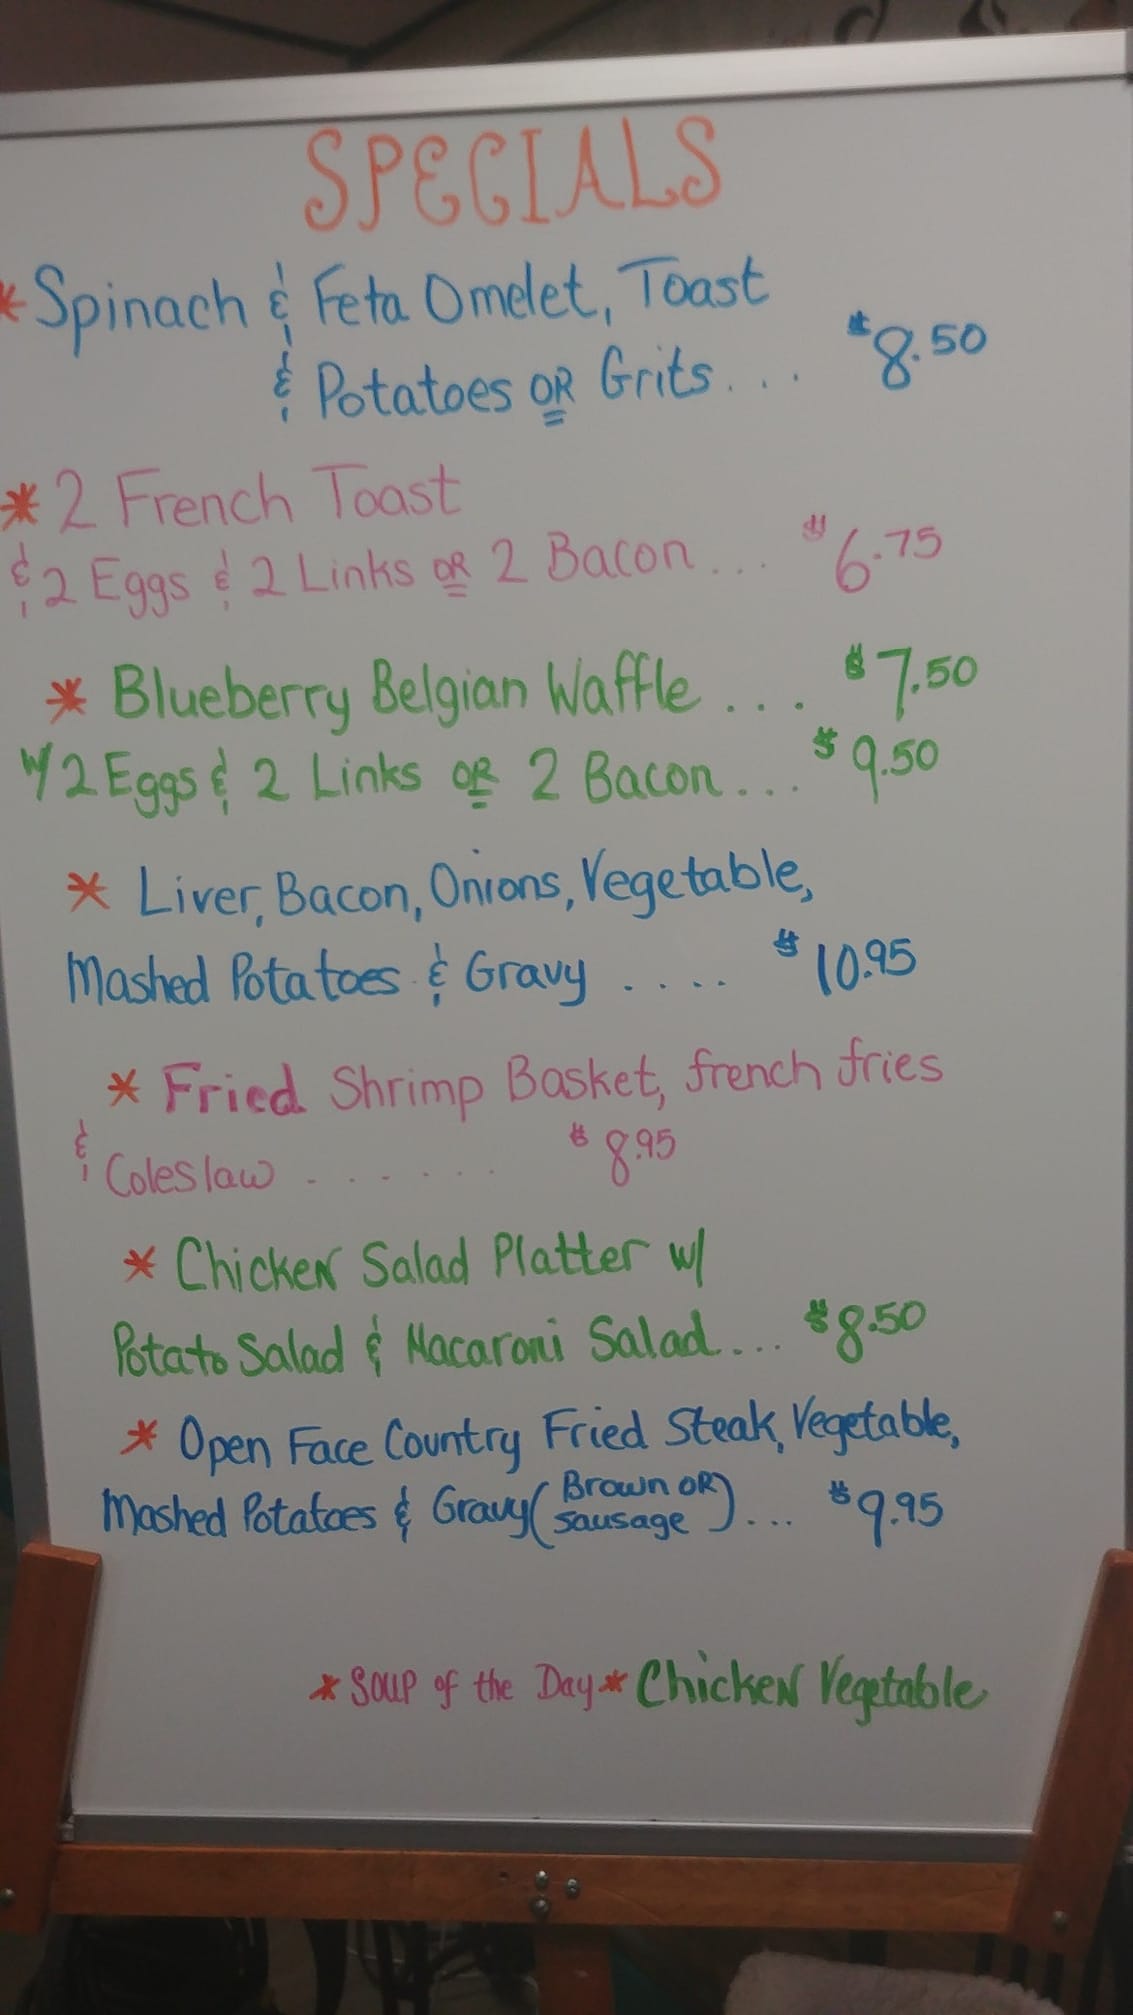 SPECIALS
* Spinach & Feta Omelet, Toast
& Potatoes OR Grits... $8.50
* 2 French Toast
& 2 Eggs & 2 Links OR 2 Bacon... $6.75
* Blueberry Belgian Waffle .... $7.50
w/ 2 Eggs & 2 Links OR 2 Bacon... $9.50
* Liver, Bacon, Onions, Vegetable,
Mashed Potatoes & Gravy .... $10.95
* Fried Shrimp Basket, french fries
& Coleslaw ...... $8.95
* Chicken Salad Platter w/
Potato Salad & Macaroni Salad... $8.50
* Open Face Country Fried Steak, Vegetable,
Mashed Potatoes & Gravy (Brown OR sausage)... $9.95
* Soup of the Day * Chicken Vegetable